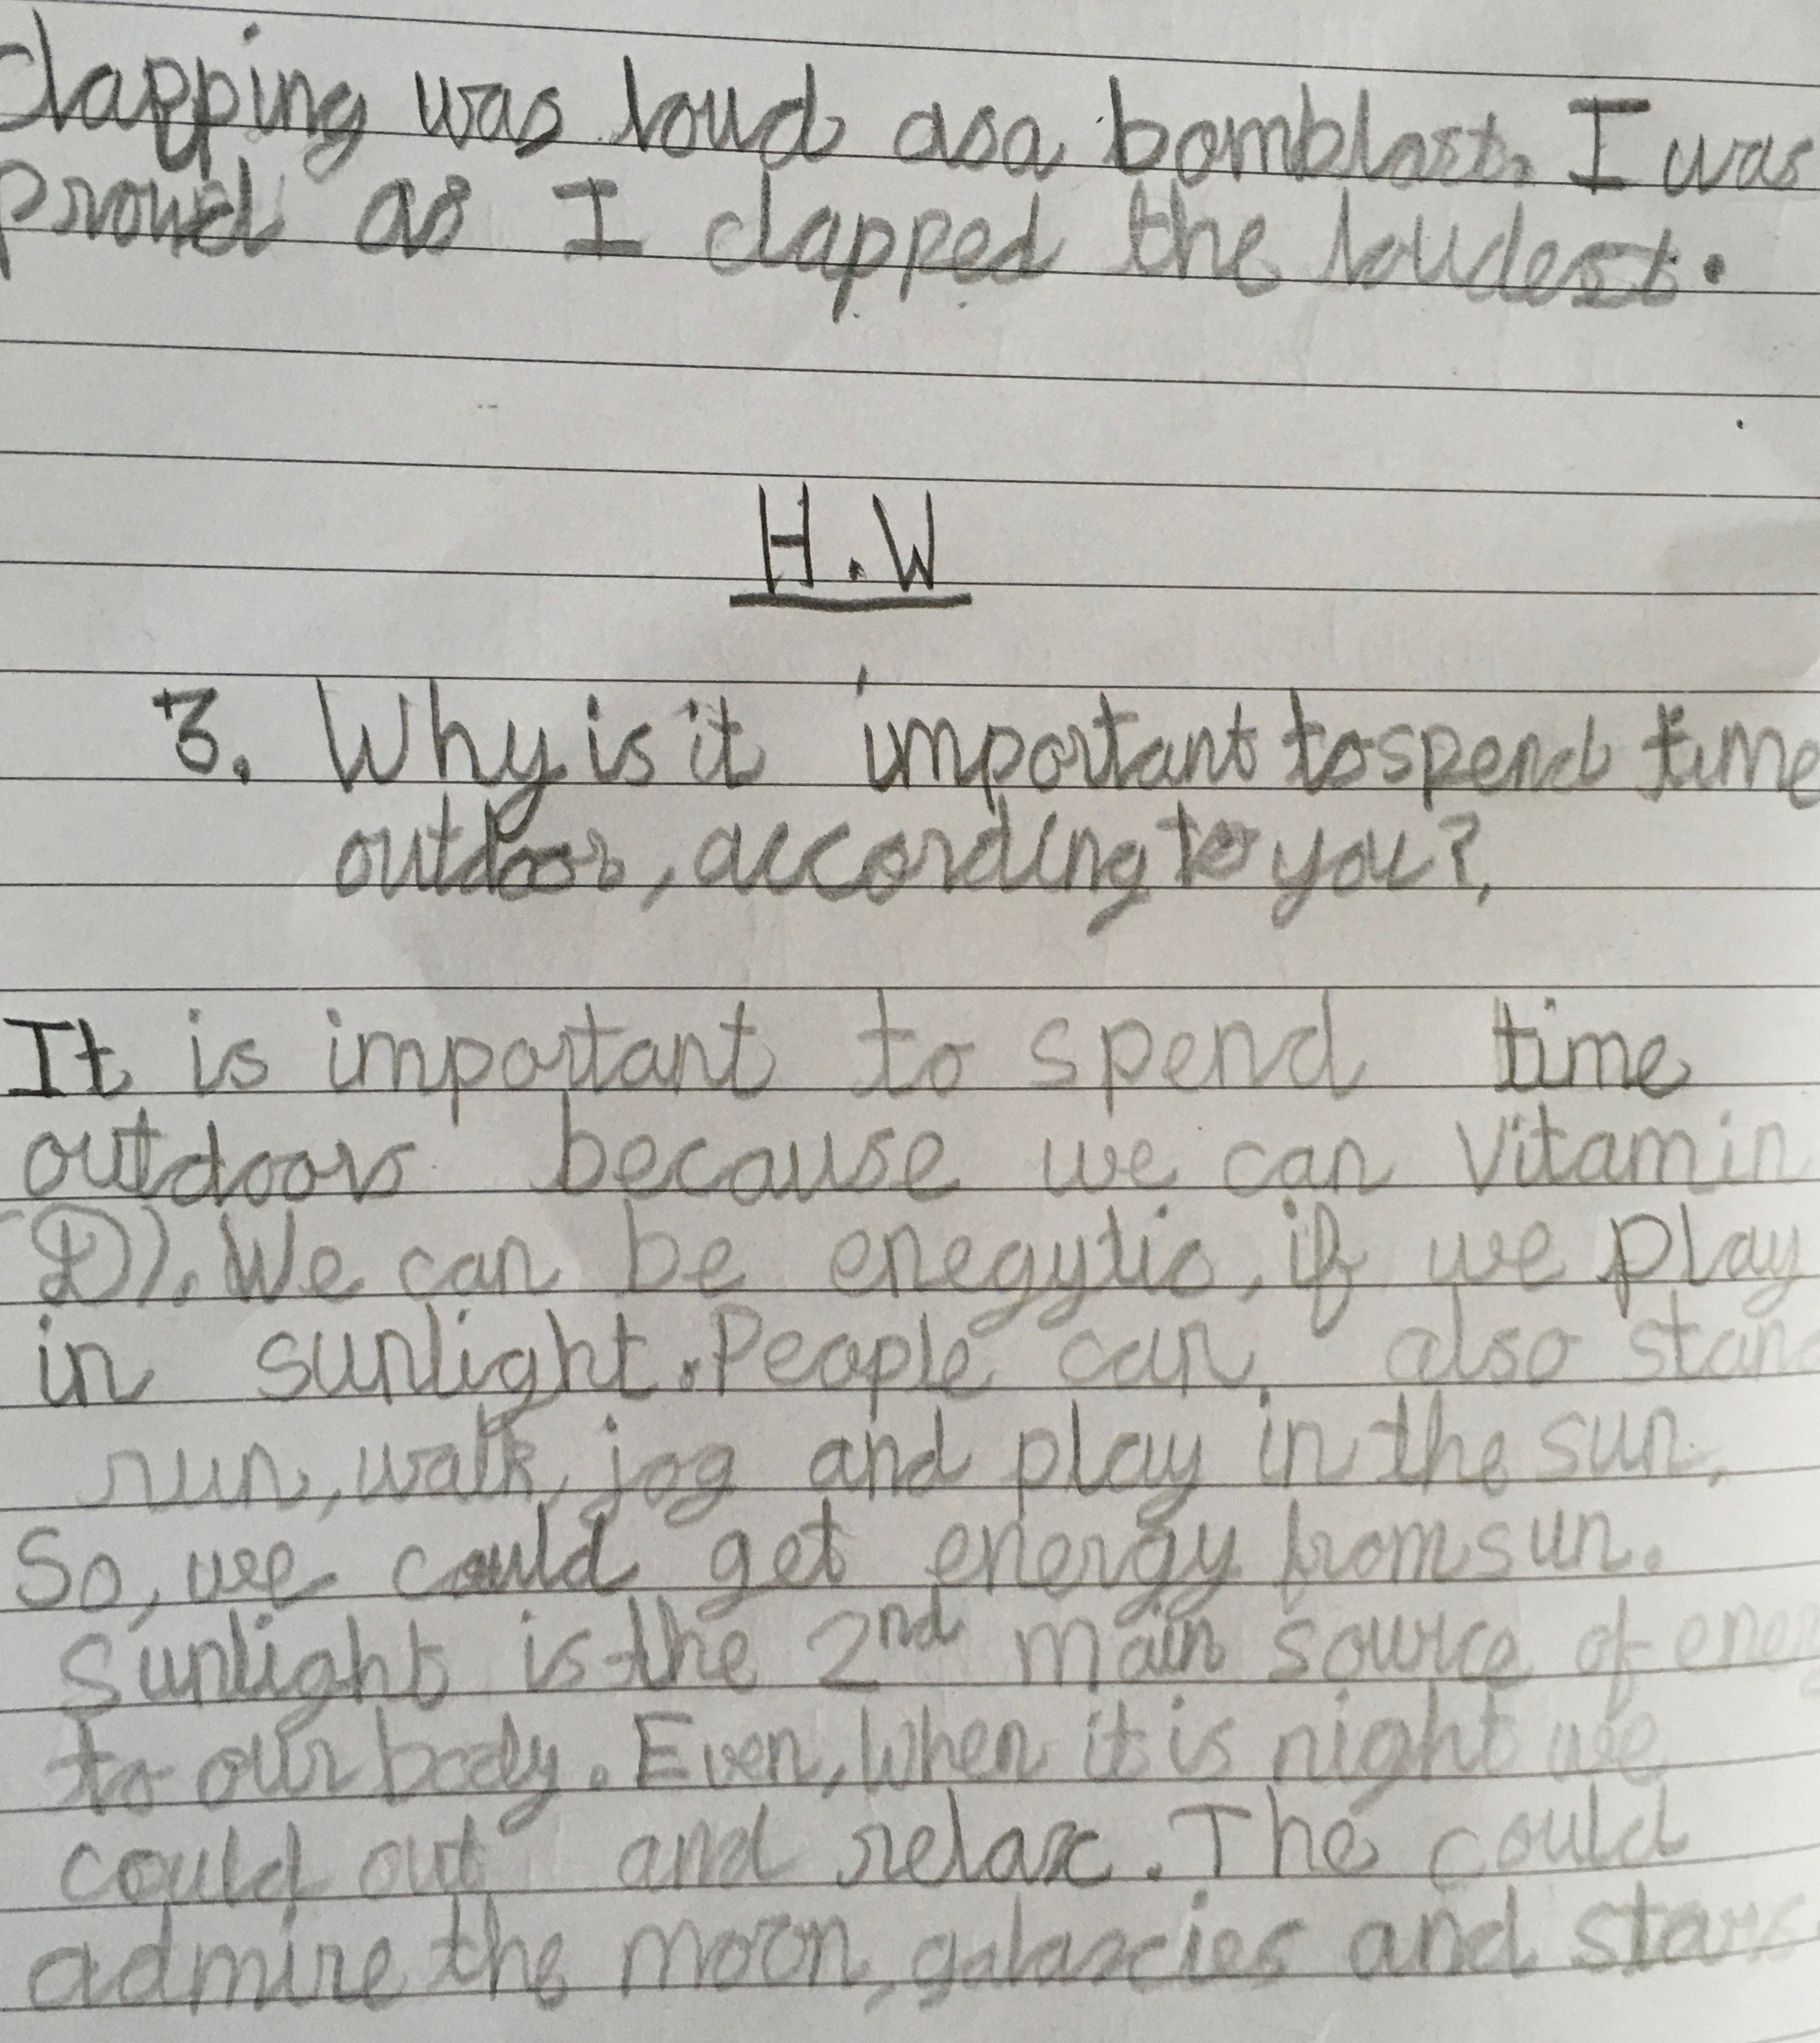 clapping was loud as a bomblast. I was
proud as I clapped the loudest.
H.W
3. Why is it important to spend time
outdoor, according to you?
It is important to spend time
outdoors because we can vitamin
(D). We can be enegytic, if we play
in sunlight. People can also stand
run, walk, jog and play in the sun.
So, we could get energy from sun.
Sunlight is the 2nd main source of energ
to our body. Even, when it is night we
could out and relax. The could
admire the moon, galaxies and stars